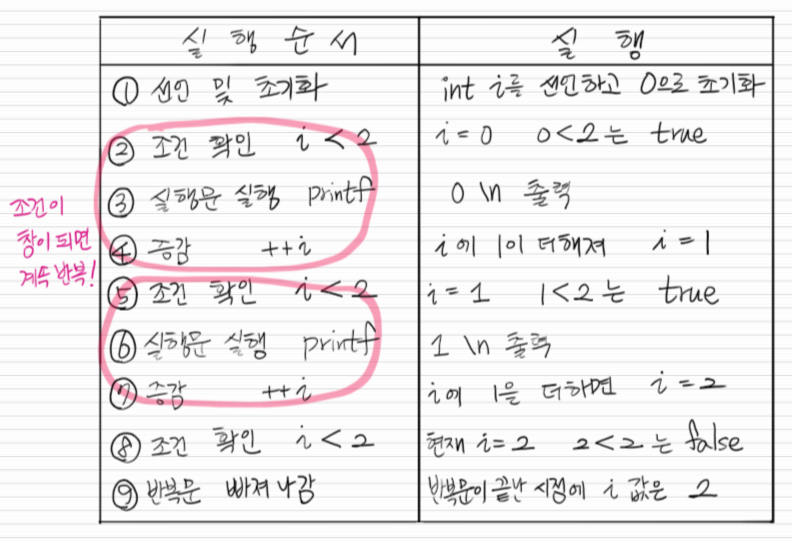 실행순서 실행
① 선언 및 초기화 int i를 선언하고 0으로 초기화
② 조건 확인 i < 2 i = 0 0<2는 true
③ 실행문 실행 printf 0 \n 출력
④ 증감 ++i i에 1이 더해져 i = 1
⑤ 조건 확인 i < 2 i = 1 1<2는 true
⑥ 실행문 실행 printf 1 \n 출력
⑦ 증감 ++i i에 1을 더하면 i = 2
⑧ 조건 확인 i < 2 현재 i = 2 2<2는 false
⑨ 반복문 빠져나감 반복문이 끝난 시점에 i 값은 2
조건이
참이 되면
계속 반복!